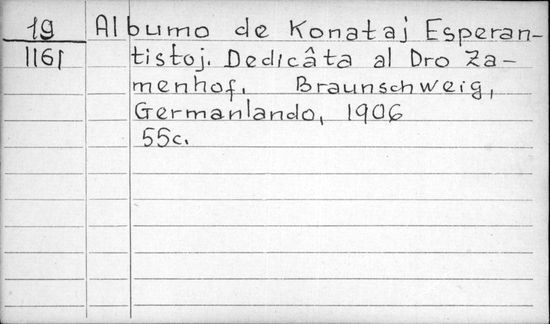 19
1161
Albumo de Konataj Esperan-
tistoj. Dedicâta al Dro Za-
menhof. Braunschweig,
Germanlando, 1906
55c.